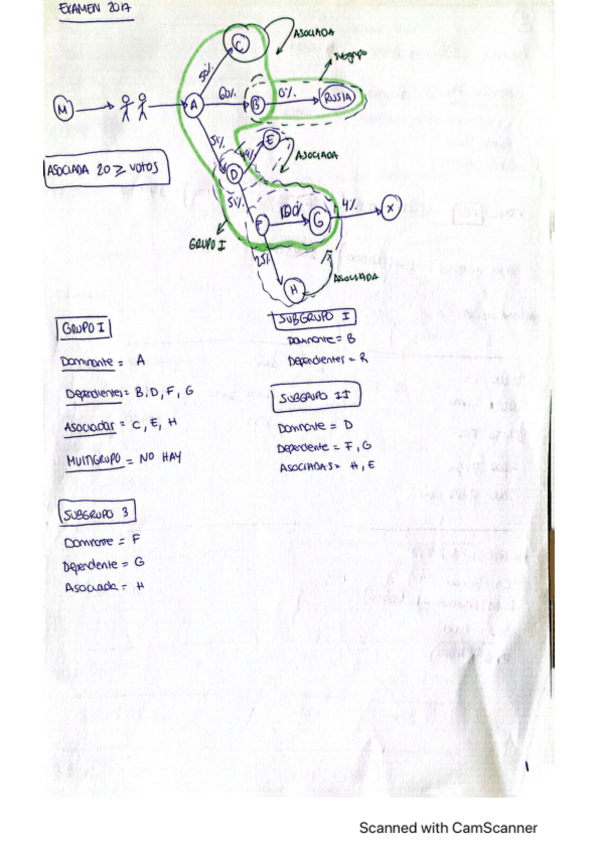 EXAMEN 2017
C
ASOCIADA
Subgrupo
50%
M
A
60%
B
0%
RUSIA
51%
E
ASOCIADA
ASOCIADA 20 ≥ VOTOS
D
51%
F
100%
G
4%
X
GRUPO I
25%
H
ASOCIADA
GRUPO I
Dominante = A
Dependientes = B, D, F, G
Asociadas = C, E, H
MULTIGRUPO = NO HAY
SUBGRUPO I
Dominante = B
Dependientes = R
SUBGRUPO II
Dominante = D
Dependiente = F, G
ASOCIADAS = H, E
SUBGRUPO 3
Dominante = F
Dependiente = G
Asociada = H
1
Scanned with CamScanner